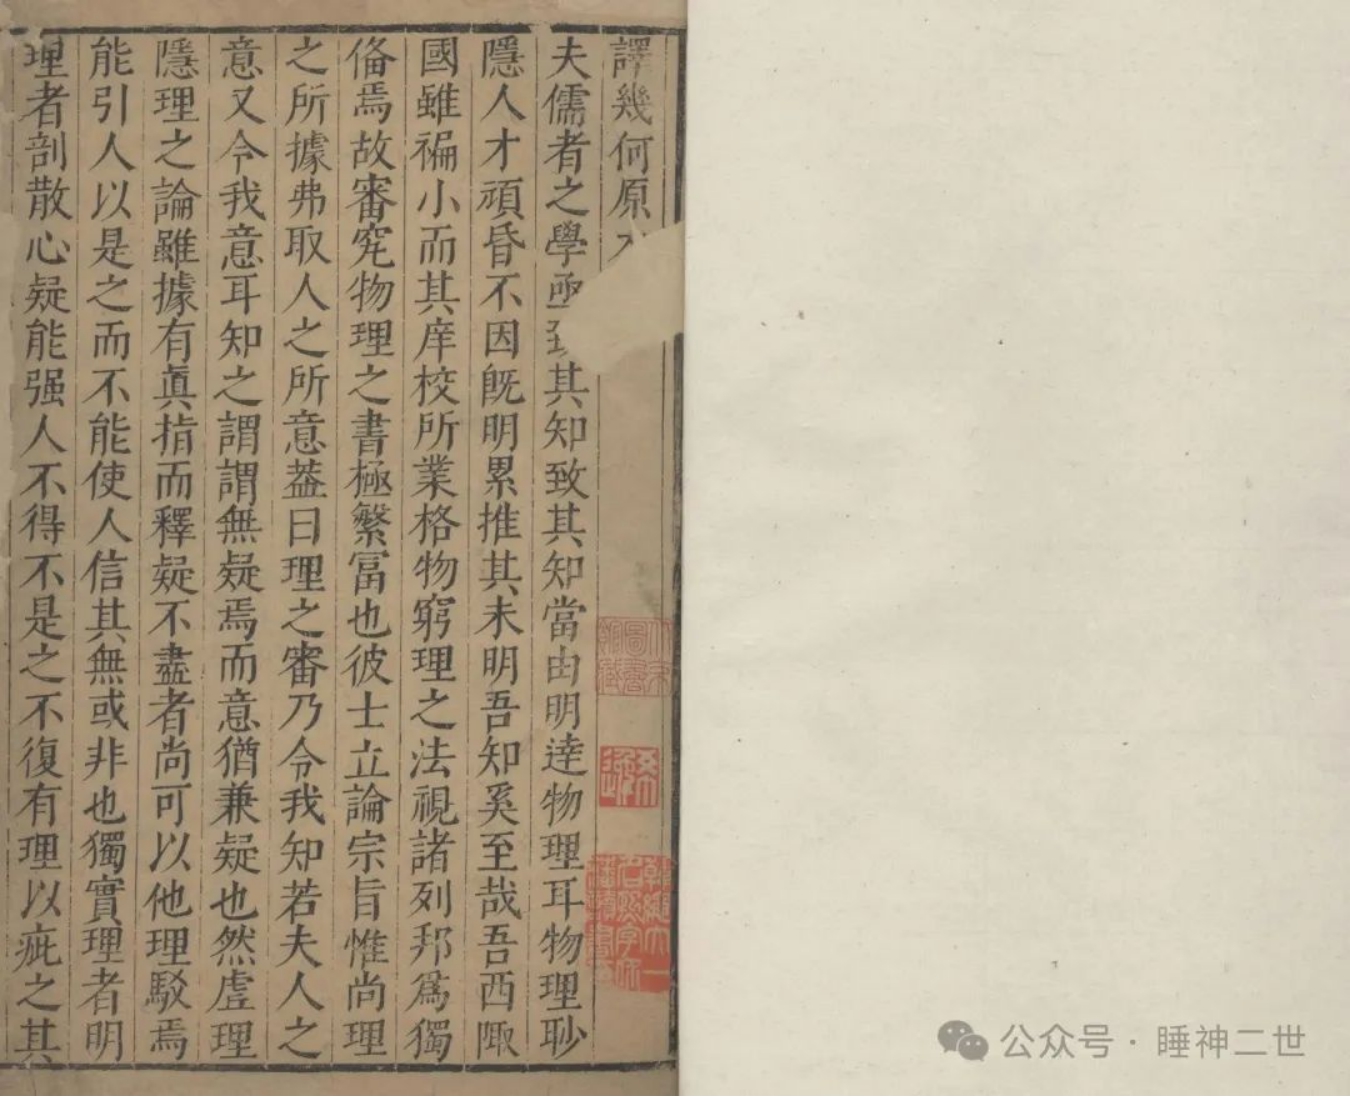 譯幾何原
夫儒者之學亟致其知致其知當由明逹物理耳物理眇
隱人才頑昏不因旣明累推其未明吾知奚至哉吾西陬
國雖褊小而其庠校所業格物窮理之法視諸列邦爲獨
俻焉故審究物理之書極繁冨也彼士立論宗旨惟尚理
之所據弗取人之所意葢曰理之審乃令我知若夫人之
意又令我意耳知之謂謂無疑焉而意猶兼疑也然虛理
隱理之論雖據有眞指而釋疑不盡者尚可以他理駁焉
能引人以是之而不能使人信其無或非也獨實理者明
理者剖散心疑能强人不得不是之不復有理以疵之其
公众号·睡神二世